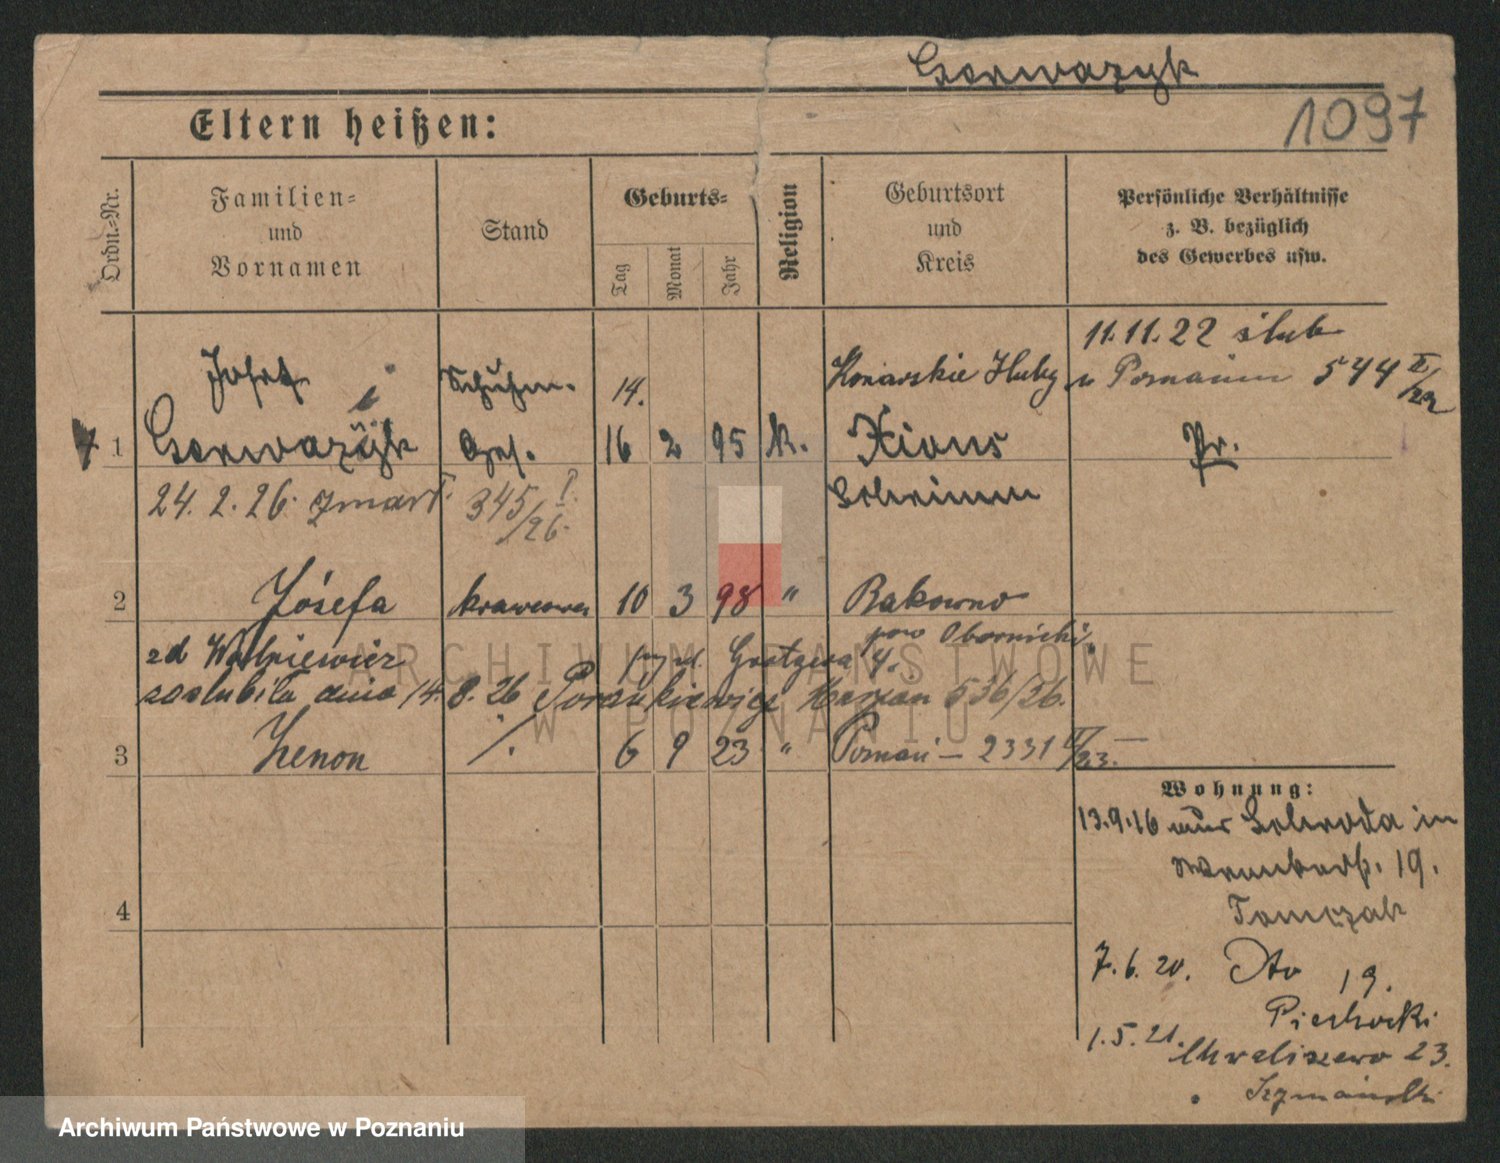 Gorwazyk
1097
Eltern heißen:
Ordn.-Nr.
Familien-
und
Vornamen
Stand
Geburts-
Tag
Monat
Jahr
Religion
Geburtsort
und
Kreis
Persönliche Verhältnisse
z. B. bezüglich
des Gewerbes usw.
11.11.22 ślub
Josef Schuhm. 14. Konarskie Huby w Poznaniu 544 II/22
1 16 2 95 K. Xions Pr.
24. 2. 26. zmarł 345 I/26. Schrimm
2 Józefa krawcowa 10 3 98 " Bakowno
zd pow Obornicki
zaślubiła dnia 14. 8. 26 Marjan 536/26.
3 Zenon /. 6 9 23 " Poznań – 2331 /23. –
Wohnung:
13.9.16 aus Schroda in
19.
4
Tomczak
7.6.20. Dto 19.
Piechocki
1.5.21. Chwaliszewo 23.
Szymański
ARCHIWUM PAŃSTWOWE
W POZNANIU
Archiwum Państwowe w Poznaniu